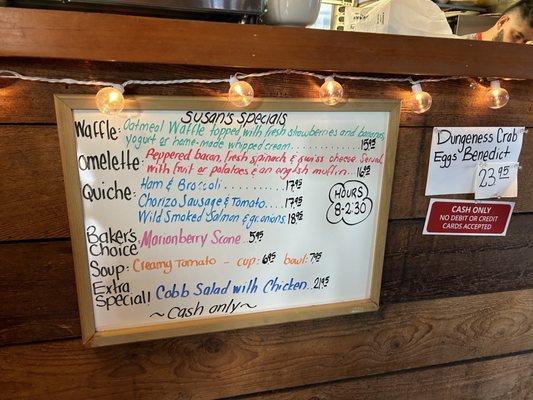 Susan's Specials
Waffle: Oatmeal Waffle topped with fresh strawberries and bananas,
yogurt or home-made whipped cream.............15.95
Omelette: Peppered bacon, fresh spinach & swiss cheese Served
with fruit or potatoes & an english muffin....16.95
Quiche: Ham & Broccoli..........17.95
Chorizo Sausage & Tomato....17.95
Wild Smoked Salmon & gr.onions.18.95
HOURS
8-2:30
Baker's Choice Marionberry Scone. 5.95
Soup: Creamy Tomato - cup: 6.95 bowl: 7.95
Extra Special! Cobb Salad with Chicken...21.95
~Cash only~
Dungeness Crab
Eggs Benedict
23.95
CASH ONLY
NO DEBIT OR CREDIT
CARDS ACCEPTED